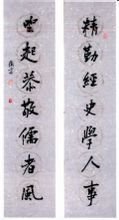 精勤經史學人事
起恭敬儒者風